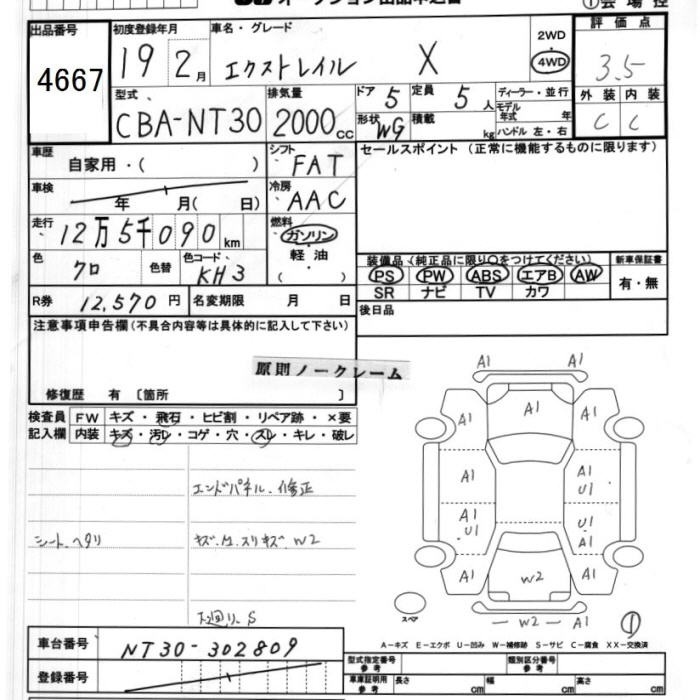 オークション出品申込書
①会場控
出品番号
4667
初度登録年月
19 2月
車名・グレード
エクストレイル X
2WD
・
4WD
評価点
3.5
型式
CBA-NT30
排気量
2000cc
ドア 5
定員 5人
形状 WG
積載 kg
ディーラー・並行
モデル年式 年
ハンドル 左・右
外装 内装
C C
車歴
自家用・( )
シフト
FAT
セールスポイント(正常に機能するものに限ります)
車検
年 月( 日)
冷房
AAC
走行
12万5千090km
燃料
ガソリン
軽油
( ・ )
色
クロ
色替
色コード
KH3
装備品(純正品に限り○をつけてください)
PS PW ABS エアB AW
SR ナビ TV カワ
新車保証書
有・無
R券 12,570円
名変期限 月 日
後日品
注意事項申告欄(不具合内容等は具体的に記入して下さい)
原則ノークレーム
修復歴 有〔箇所 〕
検査員記入欄
FW キズ・飛石・ヒビ割・リペア跡・×要
内装 キズ・汚レ・コゲ・穴・スレ・キレ・破レ
エンドパネル、修正
シート、ヘタリ
W2
下廻リ、S
A1 A1
A1 A1 A1
A1 A1 U1
A1 U1 U1 A1
A1 W2 A1
W2 A1
スペア
①
A－キズ E－エクボ U－凹み W－補修跡 S－サビ C－腐食 XX－交換済
車台番号 NT30-302809
登録番号
型式指定番号 参考
類別区分番号 参考
車庫証明用 参考
長さ cm
幅 cm
高さ cm